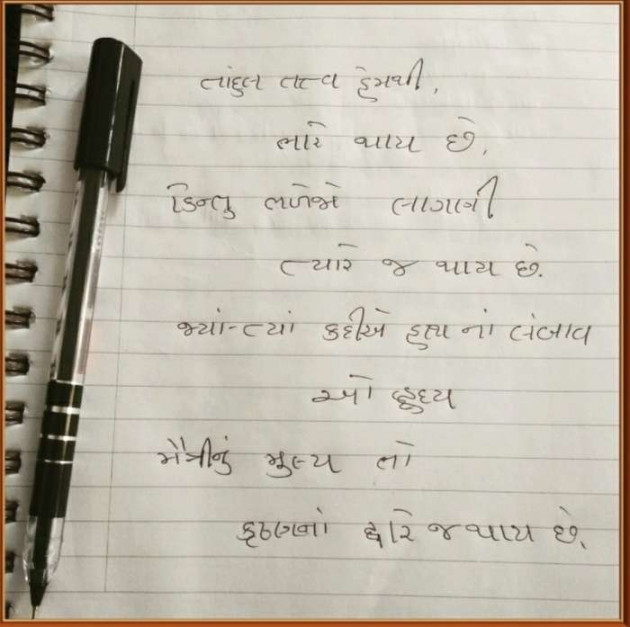 તાંદુલ તત્વ હેમથી,
ભારે થાય છે,
કિન્તુ ભળેજો લાગણી
ત્યારે જ થાય છે.
જ્યાં-ત્યાં કદીએ હાથ નાં લંબાવ
ઓ હ્રુદય
મૈત્રીનું મુલ્ય તો
કૃષ્ણનાં દ્વારે જ થાય છે.